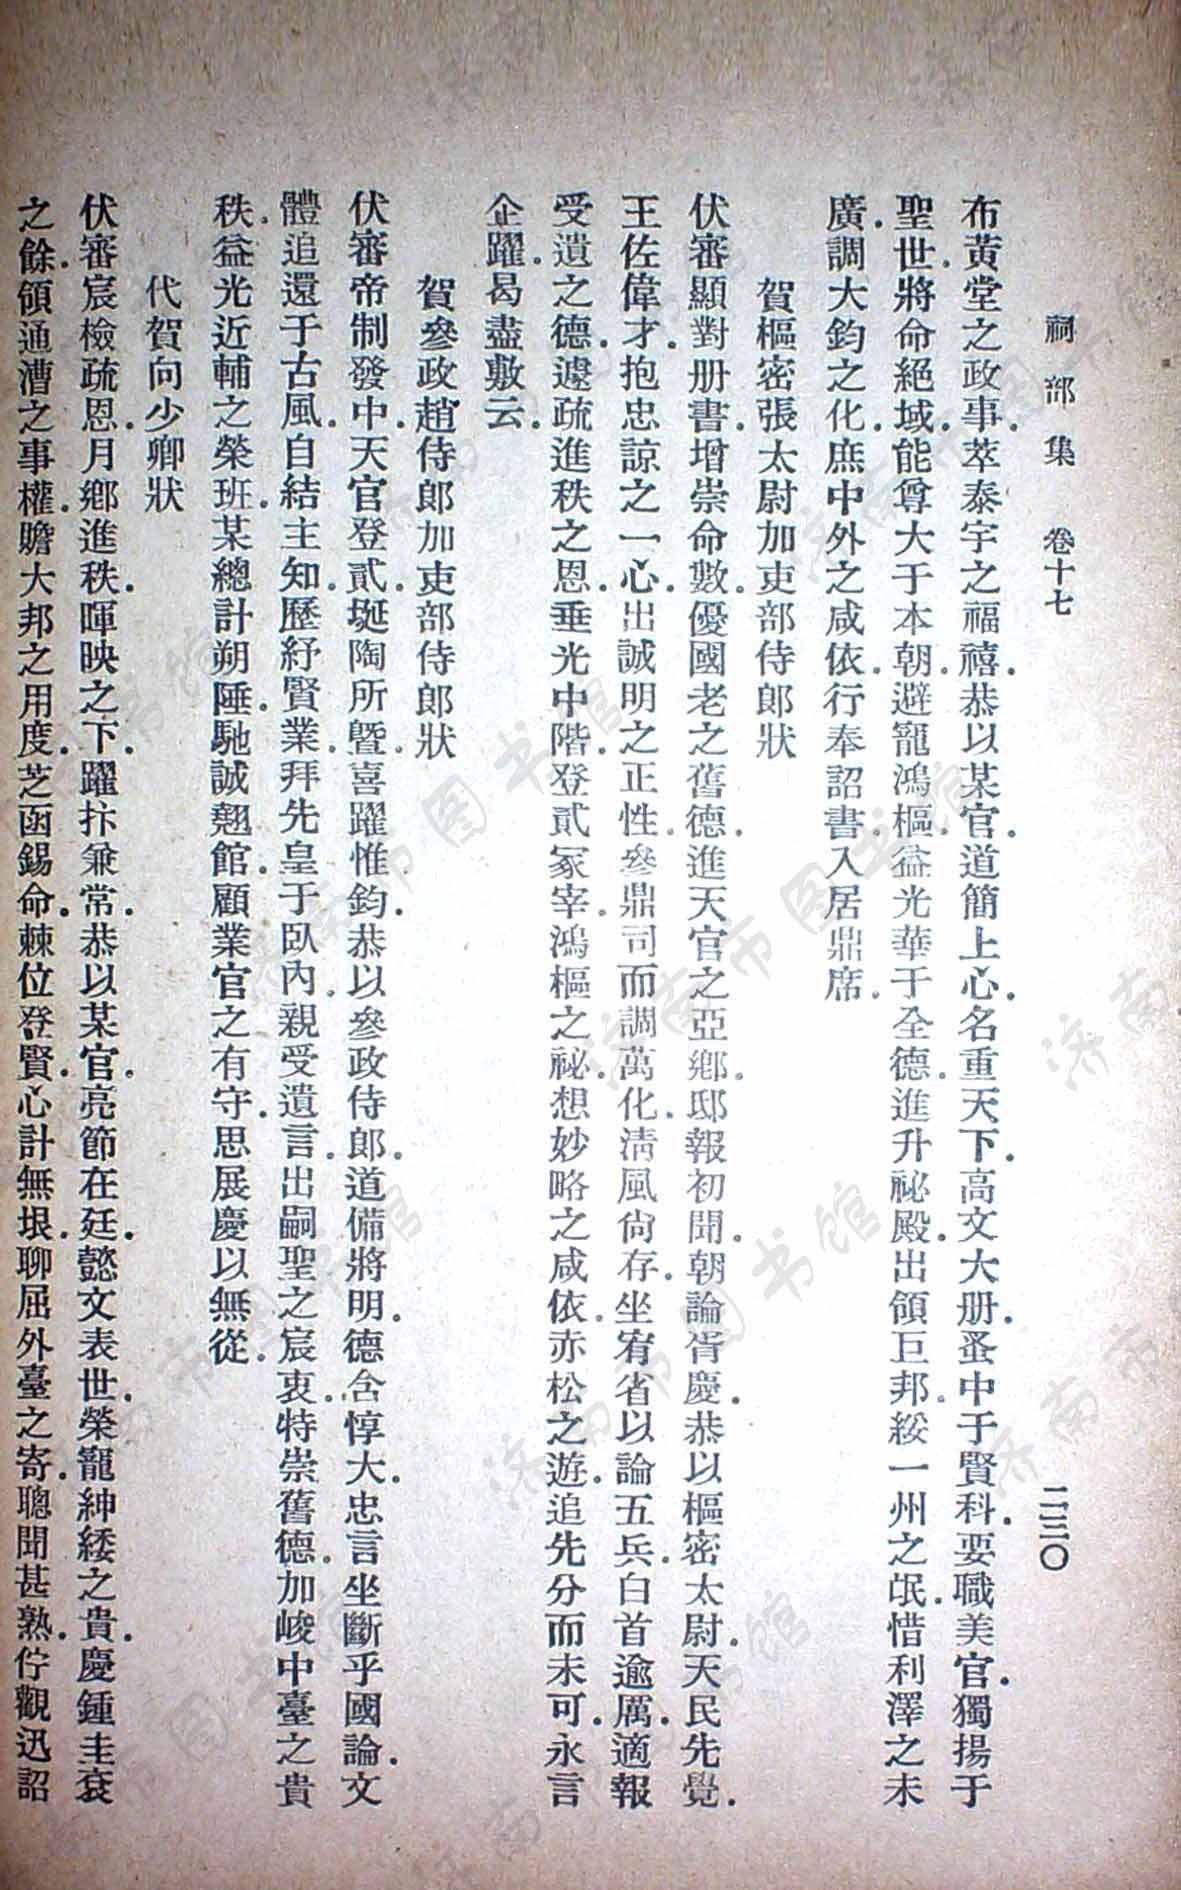 祠部集 卷十七 二三〇
布黃堂之政事.萃泰宇之福禧.恭以某官.道簡上心.名重天下.高文大册.蚤中于賢科.要職美官.獨揚于
聖世.將命絕域.能尊大于本朝.避寵鴻樞.益光華于全德.進升祕殿.出領巨邦.綏一州之氓.惜利澤之未
廣.調大鈞之化.庶中外之咸依.行奉詔書.入居鼎席.
賀樞密張太尉加吏部侍郎狀
伏審顯對册書.增崇命數.優國老之舊德.進天官之亞鄉.邸報初聞.朝論胥慶.恭以樞密太尉.天民先覺.
王佐偉才.抱忠諒之一心.出誠明之正性.參鼎司而調萬化.清風尙存.坐宥省以論五兵.白首逾厲.適報
受遺之德.遽疏進秩之恩.垂光中階.登貳冢宰.鴻樞之祕.想妙略之咸依.赤松之遊.追先分而未可.永言
企躍.曷盡敷云.
賀參政趙侍郎加吏部侍郎狀
伏審帝制發中.天官登貳.埏陶所曁.喜躍惟鈞.恭以參政侍郎.道備將明.德含惇大.忠言坐斷乎國論.文
體追還于古風.自結主知.歷紓賢業.拜先皇于臥內.親受遺言.出嗣聖之宸衷.特崇舊德.加峻中臺之貴
秩.益光近輔之榮班.某總計朔陲.馳誠翹館.顧業官之有守.思展慶以無從.
代賀向少卿狀
伏審宸檢疏恩.月鄉進秩.暉映之下.躍抃兼常.恭以某官.亮節在廷.懿文表世.榮寵紳緌之貴.慶鍾圭袞
之餘.領通漕之事權.贍大邦之用度.芝函錫命.棘位登賢.心計無垠.聊屈外臺之寄.聰聞甚熟.佇觀迅詔